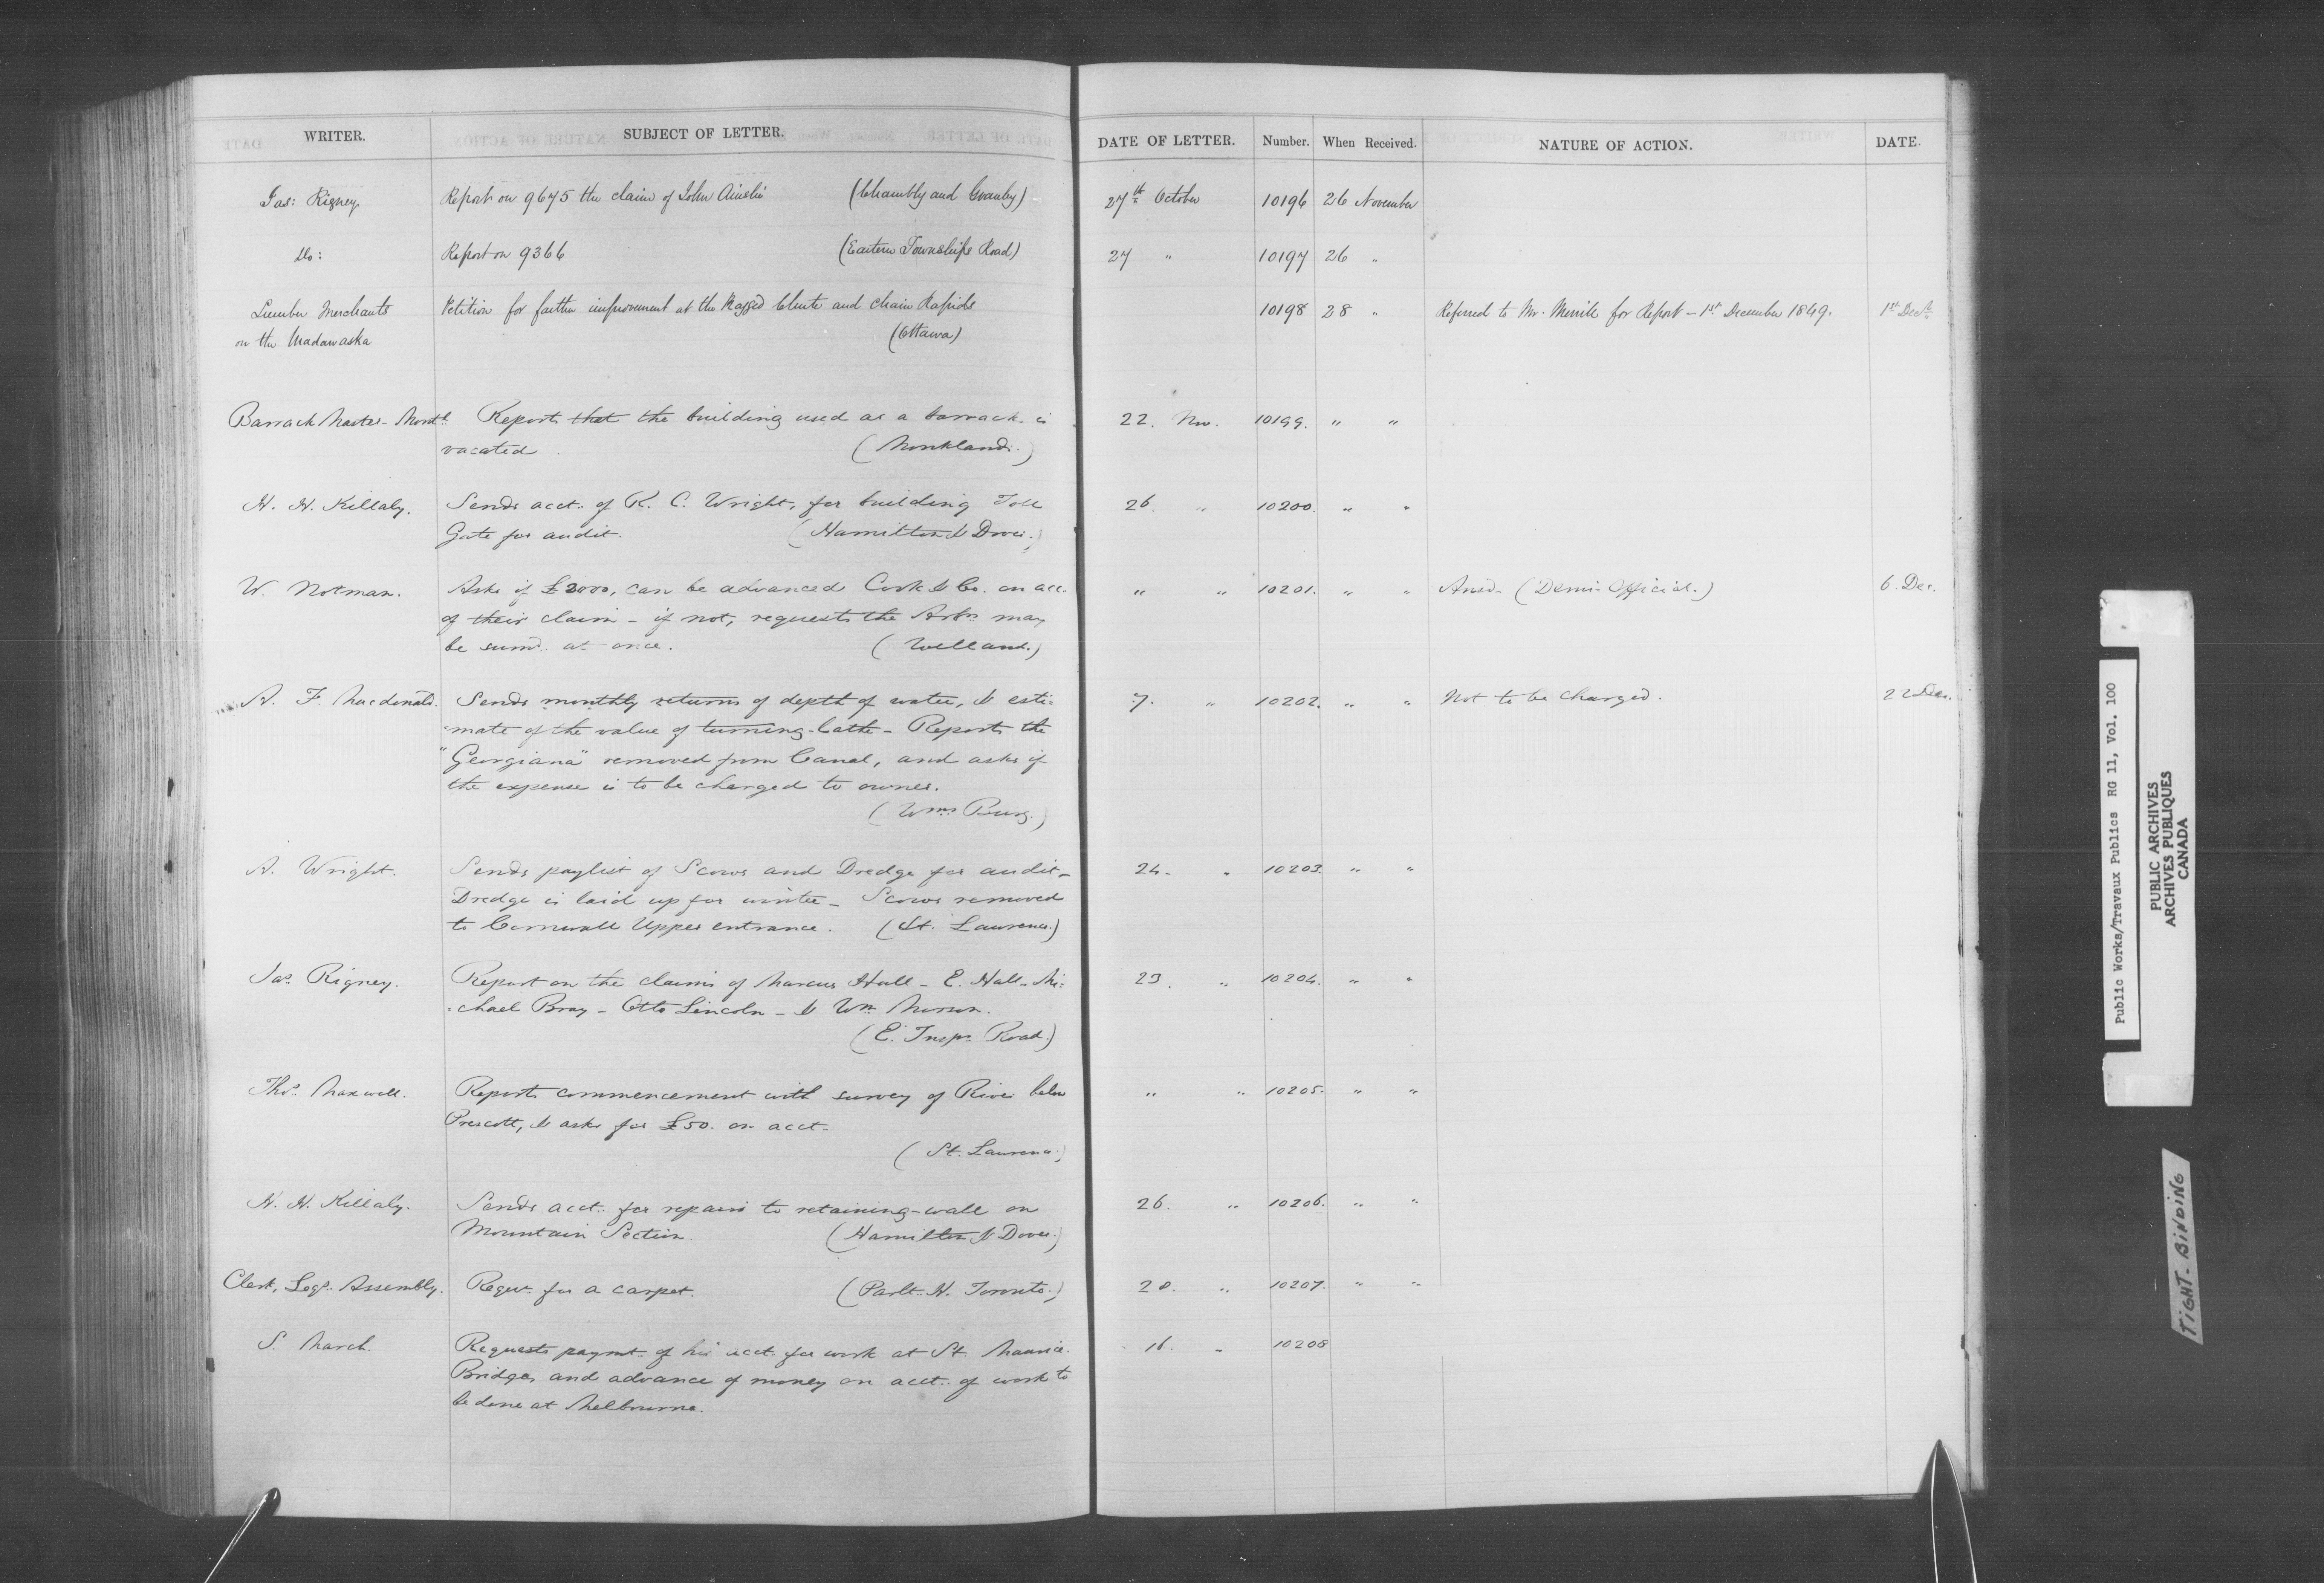 WRITER. SUBJECT OF LETTER. DATE OF LETTER. Number. When Received. NATURE OF ACTION. DATE.
Jas: Rigney. Report on 9675 the claim of John Ainslie (Chambly and Granby) 27th October 10196 26 November
Do: Report on 9366 (Eastern Townships Road) 27 " 10197 26 "
Lumber Merchants Petition for further improvement at the Ragged Chute and Chain Rapids 10198 28 " Referred to Mr. Merrill for Report - 1st December 1849. 1st Decr
on the Madawaska (Ottawa)
Barrack Master - Montl Reports that the building used as a barrack is 22. Nov. 10199. " "
vacated (Monklands.)
H. H. Killaly. Sends acct. of R. C. Wright, for building Toll 26. " 10200. " "
Gate for audit. (Hamilton & Dover.)
W. Notman. Asks if £2000, can be advanced Cook & Co. on acc. " " 10201. " " Ansd - (Demi-Official.) 6. Dec.
of their claim - if not, requests the Arbn may
be sumd at once. (Welland.)
A. F. Macdonald. Sends monthly returns of depth of water, & esti- 7. " 10202. " " Not to be charged. 22 Dec.
mate of the value of turning-lathe - Reports the
"Georgiana" removed from Canal, and asks if
the expense is to be charged to owner.
(Wms Burg.)
A. Wright. Sends paylist of Scows and Dredge for audit - 24. " 10203. " "
Dredge is laid up for winter - Scows removed
to Cornwall Upper entrance. (St. Laurence.)
Jas. Rigney. Report on the claims of Marcus Hall - E. Hall - Mi- 23. " 10204. " "
chael Bray - Otto Lincoln - & Wm
(E. Tnsps. Road.)
Thos. Maxwell. Reports commencement with survey of River below " " 10205. " "
Prescott, & asks for £50. on acct.
(St. Laurence.)
H. H. Killaly. Sends acct. for repairs to retaining-wall on 26. " 10206. " "
Mountain Section. (Hamilton & Dover.)
Clerk, Legs. Assembly. Requn. for a carpet. (Parlt. H. Toronto.) " 10207. " "
S. March. Requests paymt. of his acct. for work at St. Maurice 16. " 10208
Bridges and advance of money on acct. of work to
be done at Melbourne.
Public Works/Travaux Publics RG 11, Vol. 100
PUBLIC ARCHIVES
ARCHIVES PUBLIQUES
CANADA
TIGHT-BINDING